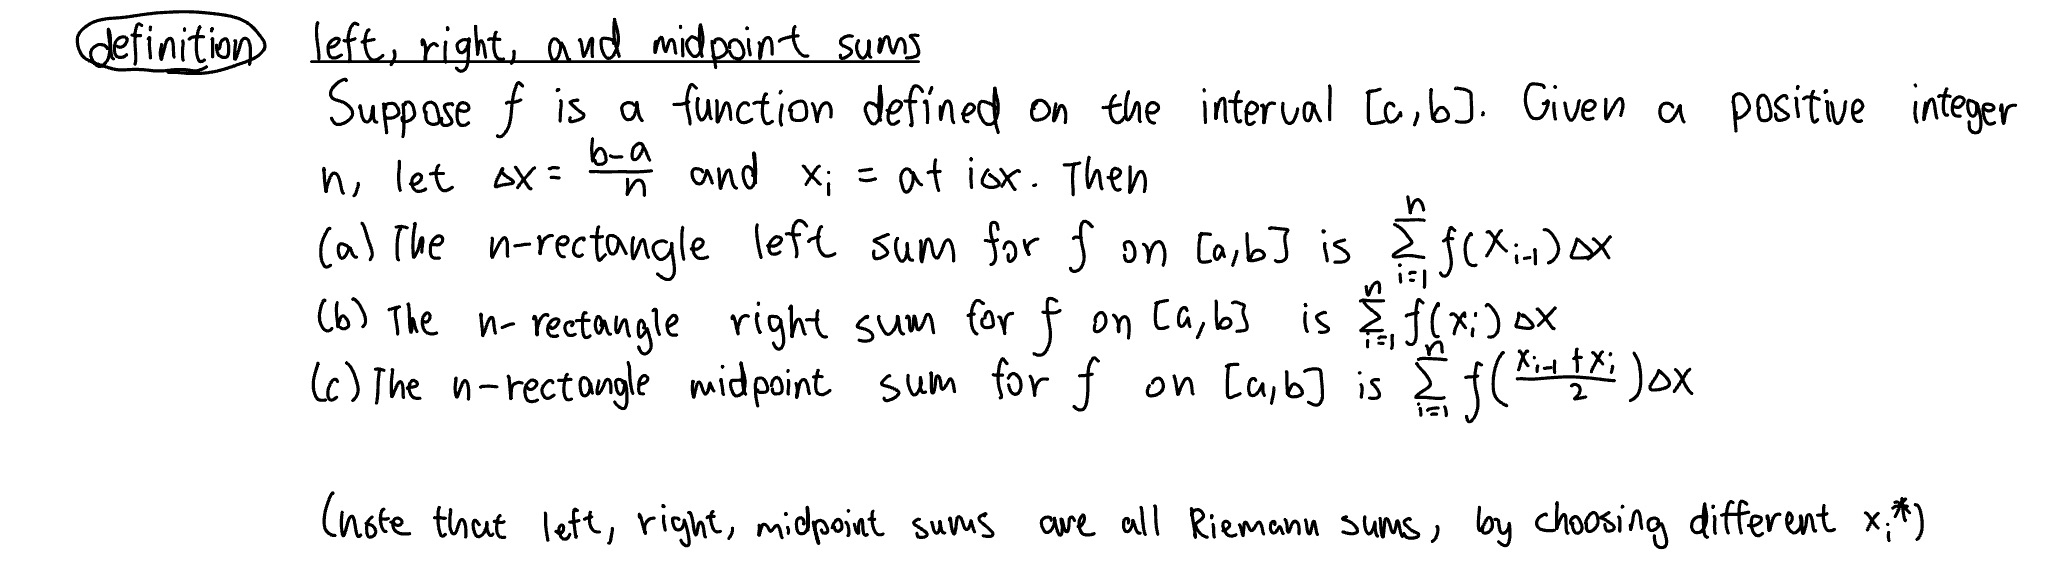 definition left, right, and midpoint sums
Suppose f is a function defined on the interval [a,b]. Given a positive integer
n, let Δx = \frac{b-a}{n} and x_i = a + iΔx. Then
(a) The n-rectangle left sum for f on [a,b] is \sum_{i=1}^{n} f(x_{i-1})Δx
(b) The n-rectangle right sum for f on [a,b] is \sum_{i=1}^{n} f(x_i)Δx
(c) The n-rectangle midpoint sum for f on [a,b] is \sum_{i=1}^{n} f(\frac{x_{i-1}+x_i}{2})Δx
(note that left, right, midpoint sums are all Riemann sums, by choosing different x_i*)